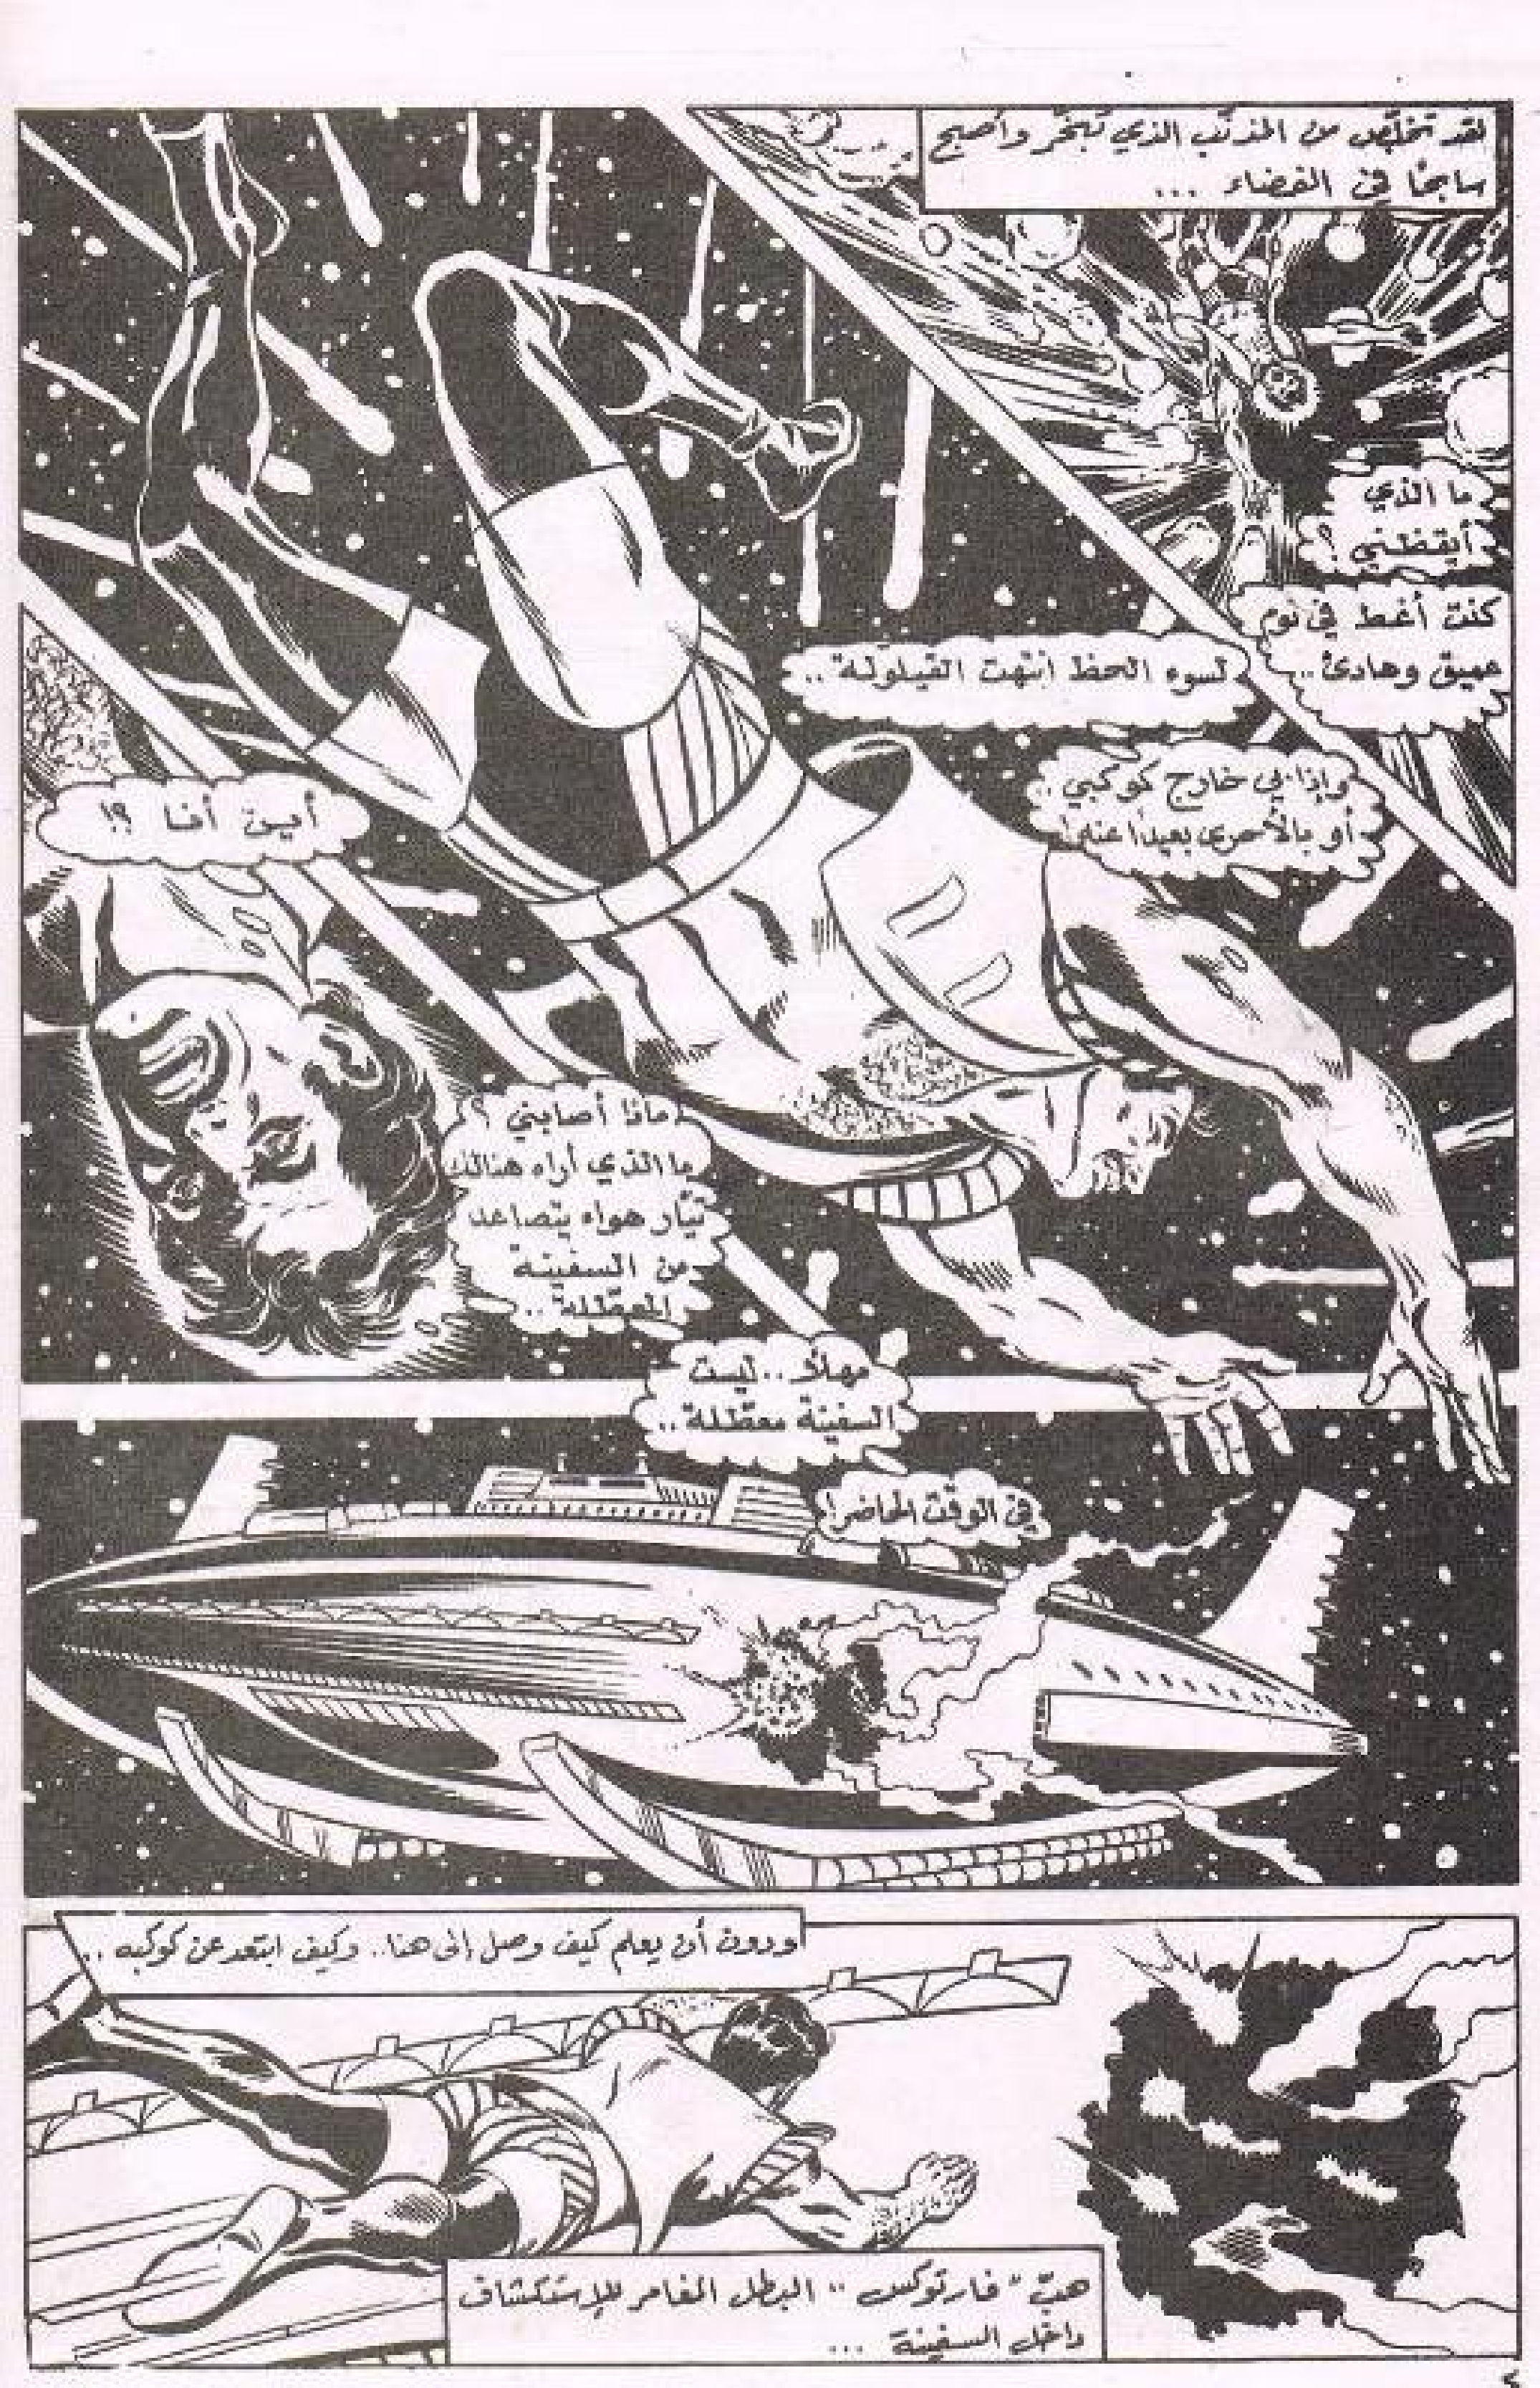 لقد تخلّص من المذنّب الذي تبخّر وأصبح
سابحًا في الفضاء ...
ما الذي
أيقظني ؟
كنت أغط في نوم
عميق وهادئ ..
لسوء الحظ انتهت القيلولة ..
وإذا بي خارج كوكبي ..
أو بالأحرى بعيدًا عنه !
أين أنا ؟!
ماذا أصابني ؟
ما الذي أراه هنالك
تيّار هواء يتصاعد
من السفينة
المعطّلة ..
مهلاً .. ليست
السفينة معطّلة ..
في الوقت الحاضر !
ودون أن يعلم كيف وصل إلى هنا .. وكيف ابتعد عن كوكبه ..
هبّ " فارتوكس " البطل المغامر للإستكشاف
داخل السفينة ...
٤